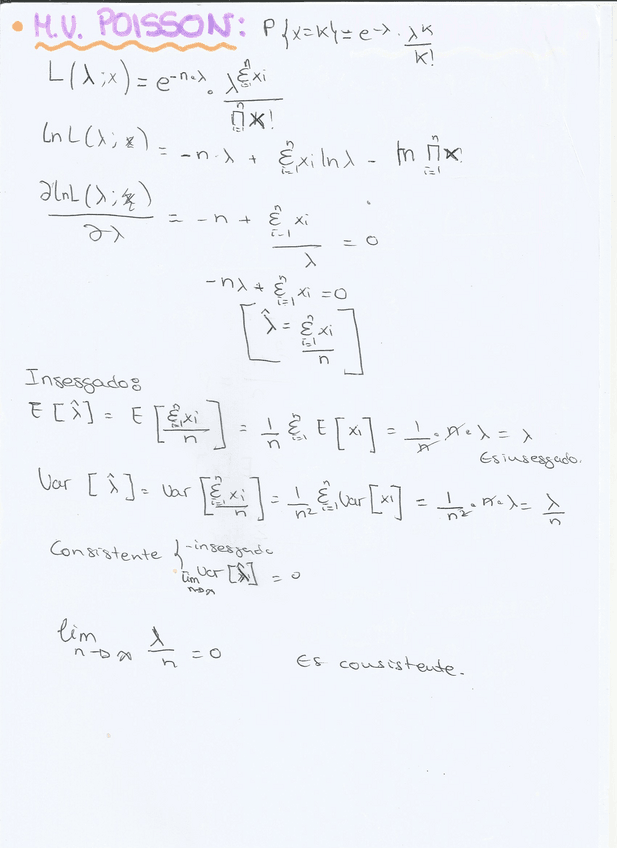 • M.V. POISSON: P{x=k}=e^-λ · λ^k/k!
L(λ;x) = e^-n·λ · λ^(Σ_{i=1}^n xi) / Π_{i=1}^n x!
ln L(λ;x) = -n·λ + Σ_{i=1}^n xi ln λ - ln Π_{i=1}^n x!
∂lnL(λ;x)/∂λ = -n + Σ_{i=1}^n xi / λ = 0
-nλ + Σ_{i=1}^n xi = 0
[λ̂ = Σ_{i=1}^n xi / n]
Insesgado:
E[λ̂] = E[Σ_{i=1}^n xi / n] = 1/n Σ_{i=1}^n E[xi] = 1/n · n · λ = λ
Es insesgado.
Var[λ̂] = Var[Σ_{i=1}^n xi / n] = 1/n² Σ_{i=1}^n Var[xi] = 1/n² · n · λ = λ/n
Consistente { -insesgado
lim_{n→∞} Var[λ̂] = 0
lim_{n→∞} λ/n = 0 Es consistente.